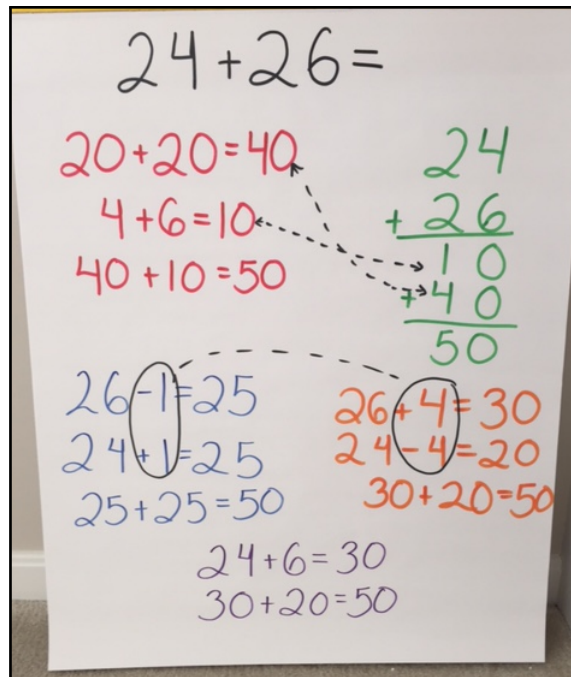 24+26=
20+20=40
4+6=10
40+10=50
24
+ 26
10
+40
50
26-1=25
24+1=25
25+25=50
26+4=30
24-4=20
30+20=50
24+6=30
30+20=50